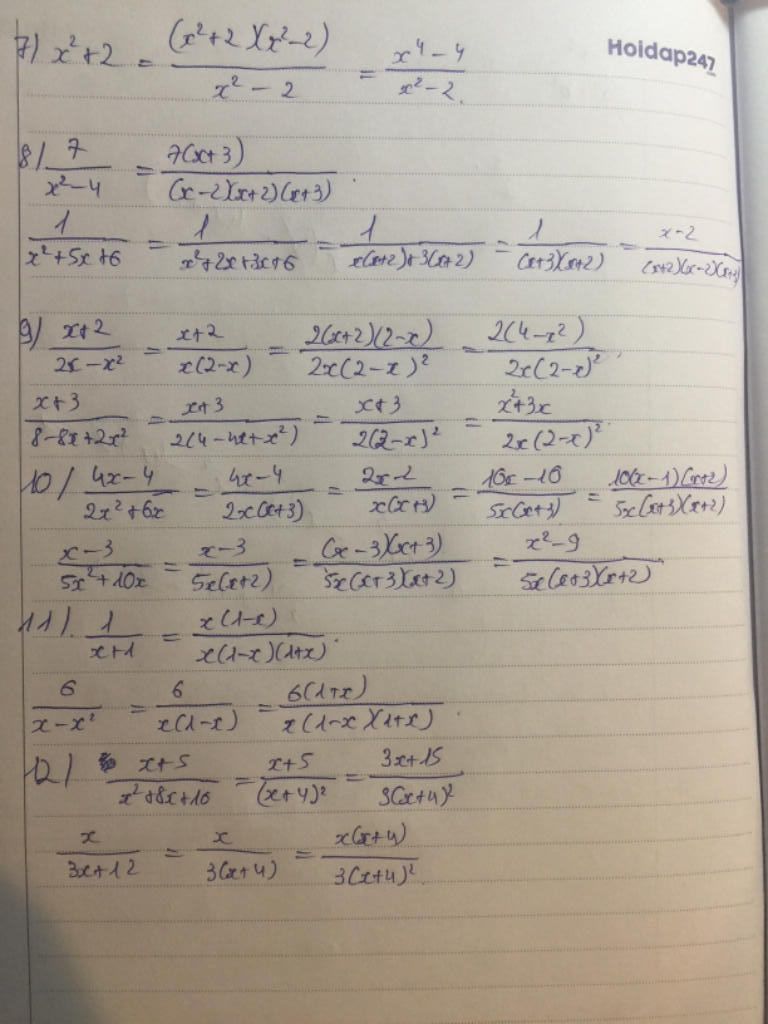 Hoidap247
7) x²+2 = (x²+2)(x²-2)/(x²-2) = (x⁴-4)/(x²-2).
8) 7/(x²-4) = 7(x+3)/((x-2)(x+2)(x+3)).
1/(x²+5x+6) = 1/(x²+2x+3x+6) = 1/(x(x+2)+3(x+2)) = 1/((x+3)(x+2)) = (x-2)/((x+2)(x-2)(x+3))
9) (x+2)/(2x-x²) = (x+2)/(x(2-x)) = 2(x+2)(2-x)/(2x(2-x)²) = 2(4-x²)/(2x(2-x)²).
(x+3)/(8-8x+2x²) = (x+3)/(2(4-4x+x²)) = (x+3)/(2(2-x)²) = (x²+3x)/(2x(2-x)²).
10) (4x-4)/(2x²+6x) = (4x-4)/(2x(x+3)) = (2x-2)/(x(x+3)) = (10x-10)/(5x(x+3)) = 10(x-1)(x+2)/(5x(x+3)(x+2))
(x-3)/(5x²+10x) = (x-3)/(5x(x+2)) = (x-3)(x+3)/(5x(x+3)(x+2)) = (x²-9)/(5x(x+3)(x+2))
11). 1/(x+1) = x(1-x)/(x(1-x)(1+x)).
6/(x-x²) = 6/(x(1-x)) = 6(1+x)/(x(1-x)(1+x)).
12) (x+5)/(x²+8x+16) = (x+5)/(x+4)² = (3x+15)/(3(x+4)²)
x/(3x+12) = x/(3(x+4)) = x(x+4)/(3(x+4)²).